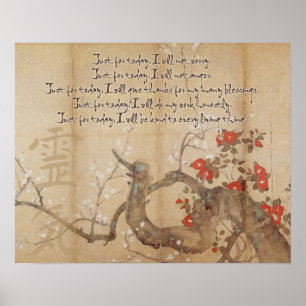 Just for today, I will not worry.
Just for today, I will not anger.
Just for today, I will give thanks for my many blessings.
Just for today, I will do my work honestly.
Just for today, I will be kind to every living thing.
靈